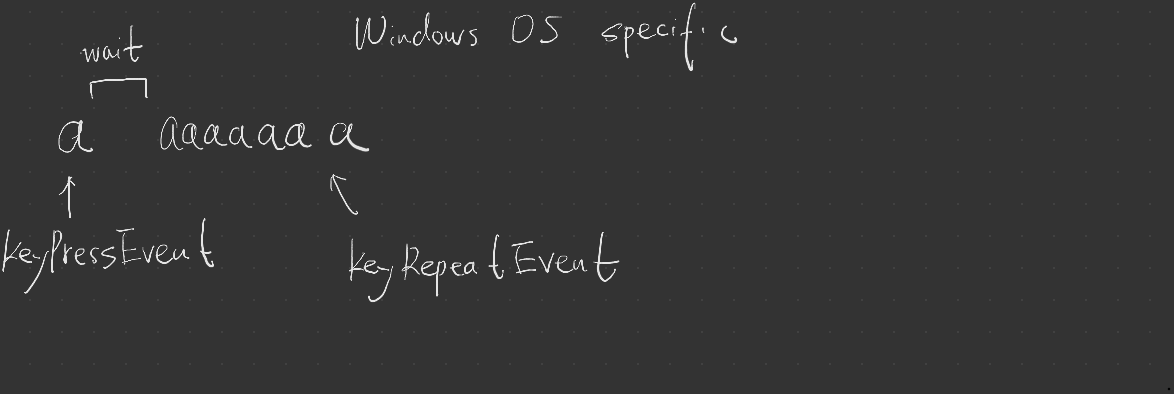 Windows OS specific
wait
a aaaaaaa
keyPressEvent
keyRepeatEvent